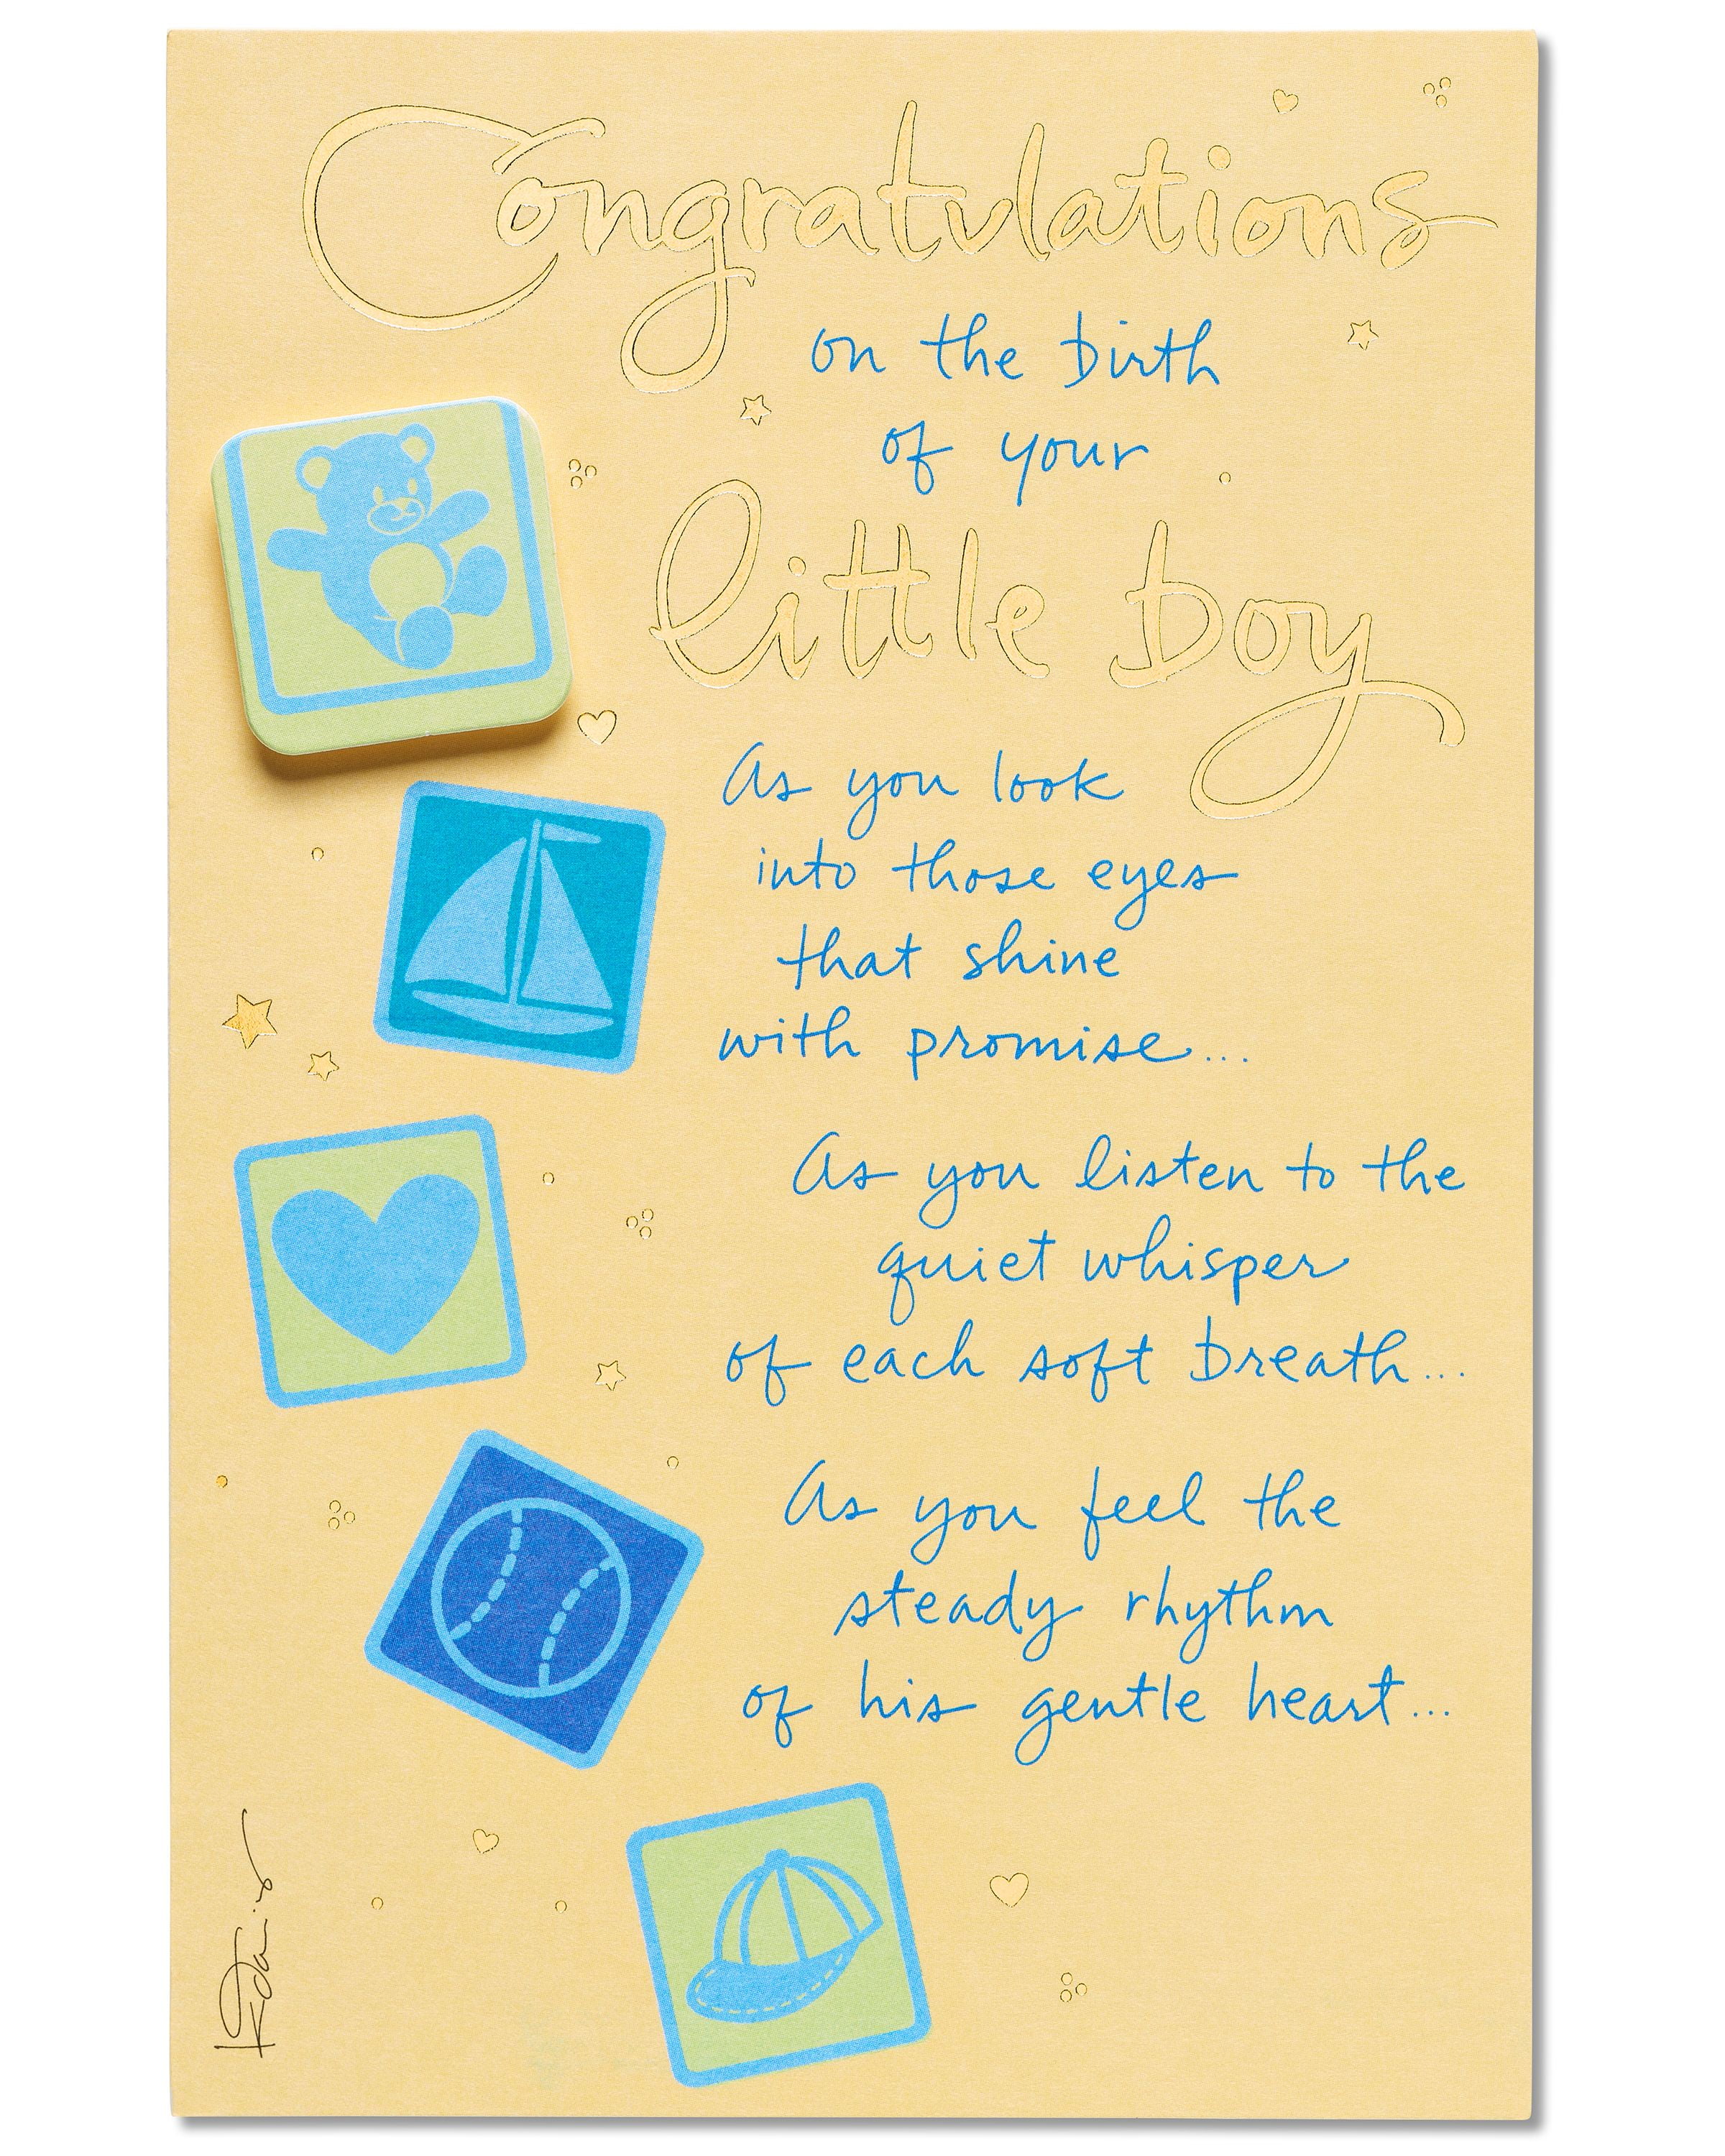 Congratulations
on the birth
of your
little boy
As you look
into those eyes
that shine
with promise...
As you listen to the
quiet whisper
of each soft breath...
As you feel the
steady rhythm
of his gentle heart...